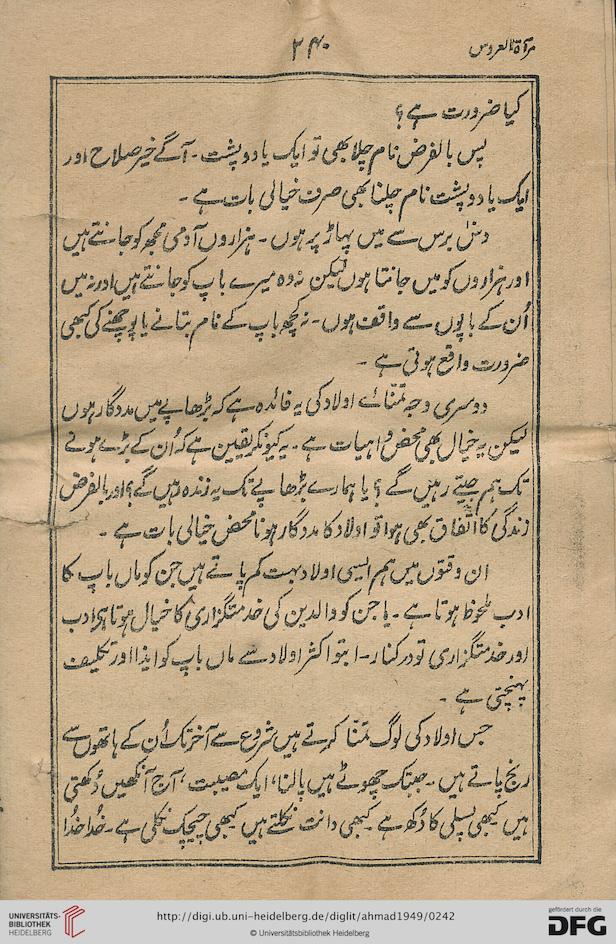 مرآة العروس
۲۴۰
کیا ضرورت ہے؟
پس بالفرض نام چلا بھی تو ایک یا دو پشت۔ آگے خیر صلاح اور
ایک یا دو پشت نام چلنا بھی صرف خیالی بات ہے۔
دس برس سے میں پہاڑ پر ہوں۔ ہزاروں آدمی مجھ کو جانتے ہیں
اور ہزاروں کو میں جانتا ہوں لیکن نہ وہ میرے باپ کو جانتے ہیں اور نہ میں
اُن کے باپوں سے واقف ہوں۔ نہ کچھ باپ کے نام بتانے یا پوچھنے کی کبھی
ضرورت واقع ہوتی ہے۔
دوسری وجہ تمنّائے اولاد کی یہ فائدہ ہے کہ بڑھاپے میں مددگار ہوں
لیکن یہ خیال بھی محض واہیات ہے۔ یہ کیونکر یقین ہے کہ اُن کے بڑے ہونے
تک ہم جیتے رہیں گے؟ یا ہمارے بڑھاپے تک یہ زندہ رہیں گے؟ اور بالفرض
زندگی کا اتّفاق بھی ہوا تو اولاد کا مددگار ہونا محض خیالی بات ہے۔
ان وقتوں میں ہم ایسی اولاد بہت کم پاتے ہیں جن کو ماں باپ کا
ادب ملحوظ ہوتا ہے۔ یا جن کو والدین کی خدمتگزاری کا خیال ہوتا ہے ادب
اور خدمتگزاری تو درکنار۔ ابتو اکثر اولاد سے ماں باپ کو ایذا اور تکلیف
پہنچتی ہے۔
جس اولاد کی لوگ تمنّا کرتے ہیں شروع سے آخر تک اُن کے ہاتھوں سے
رنج پاتے ہیں۔ جبتک چھوٹے ہیں پالنا، ایک مصیبت، آج آنکھیں دُکھتی
ہیں کبھی پسلی کا دُکھ ہے۔ کبھی دانت نکلتے ہیں کبھی چیچک نکلی ہے۔ خُدا خُدا
UNIVERSITÄTS-
BIBLIOTHEK
HEIDELBERG
http://digi.ub.uni-heidelberg.de/diglit/ahmad1949/0242
© Universitätsbibliothek Heidelberg
gefördert durch die
DFG